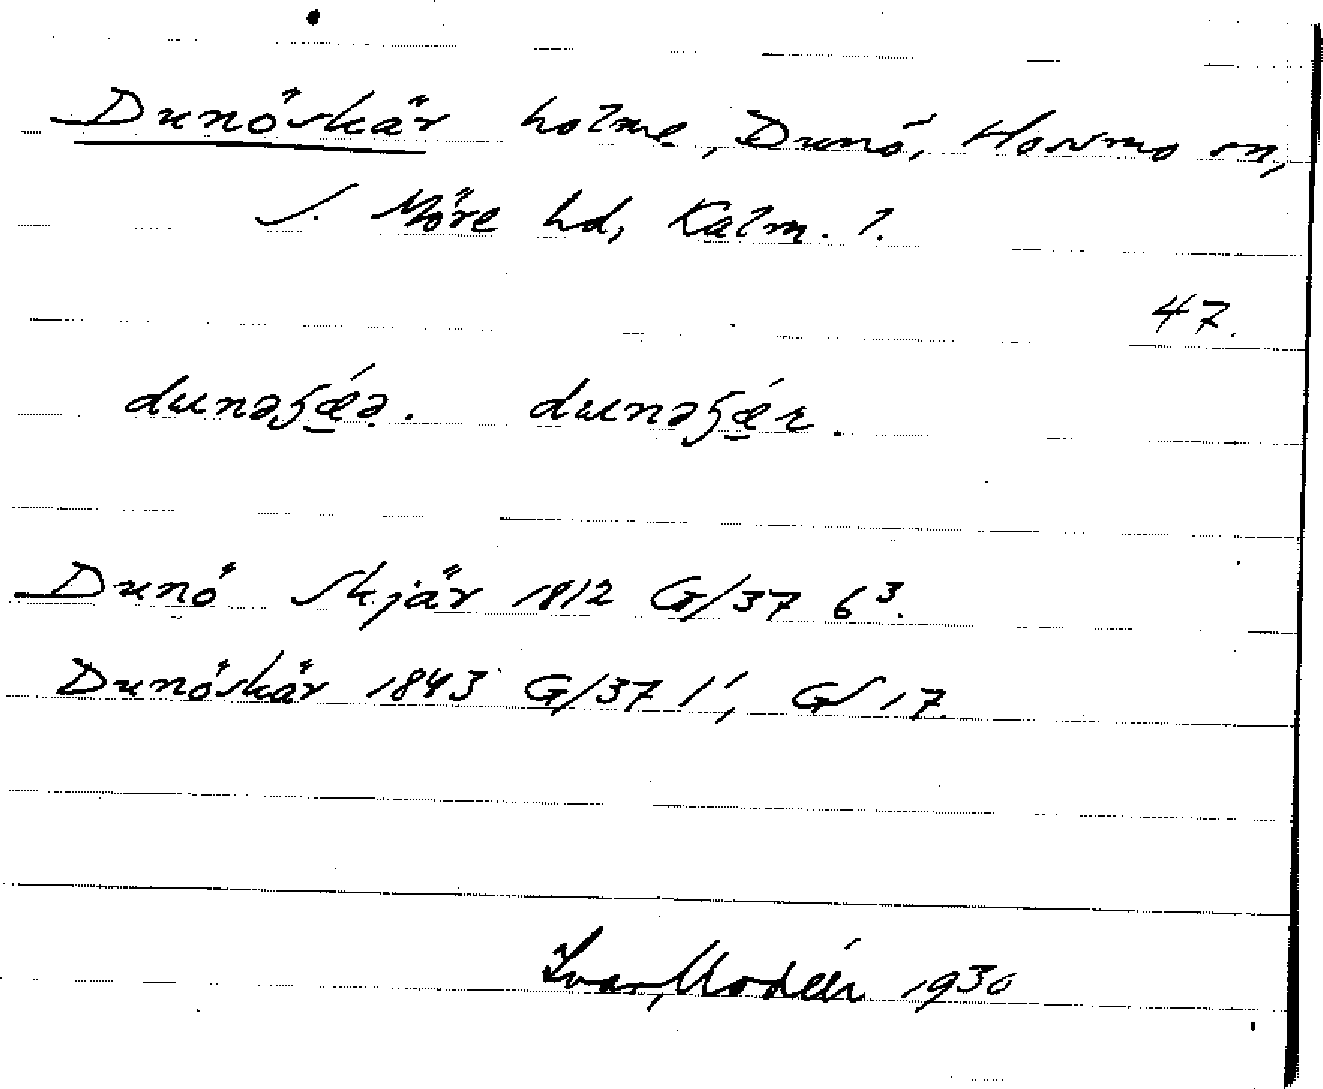 Dunöskär holme, Dunö, Hossmo sn,
S. Möre hd, Kalm. l.
47.
Dunö Skjär 1812 G/37 6³.
Dunöskär 1843 G/37 1¹, GS 17.
Ivar Modéer 1930